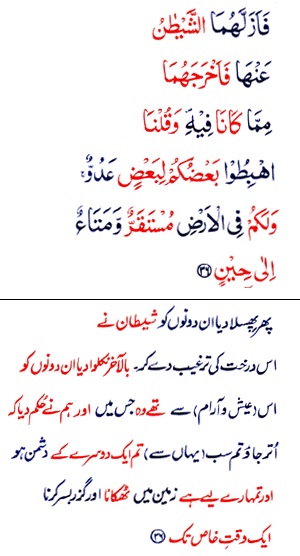 فَاَزَلَّهُمَا الشَّيْطٰنُ
عَنْهَا فَاَخْرَجَهُمَا
مِمَّا كَانَا فِيْهِ ۪ وَقُلْنَا
اهْبِطُوْا بَعْضُكُمْ لِبَعْضٍ عَدُوٌّ ۚ
وَلَكُمْ فِى الْاَرْضِ مُسْتَقَرٌّ وَّمَتَاعٌ
اِلٰى حِيْنٍ ﴿۳۶﴾
پھر پھسلا دیا ان دونوں کو شیطان نے
اس درخت کی ترغیب دے کر۔ بالآخر نکلوا دیا ان دونوں کو
اس (عیش و آرام) سے تھے وہ جس میں اور ہم نے حکم دیا کہ
اُتر جاؤ تم سب (یہاں سے) تم ایک دوسرے کے دشمن ہو
اور تمہارے لیے ہے زمین میں ٹھکانا اور گزر بسر کرنا
ایک وقتِ خاص تک ﴿۳۶﴾